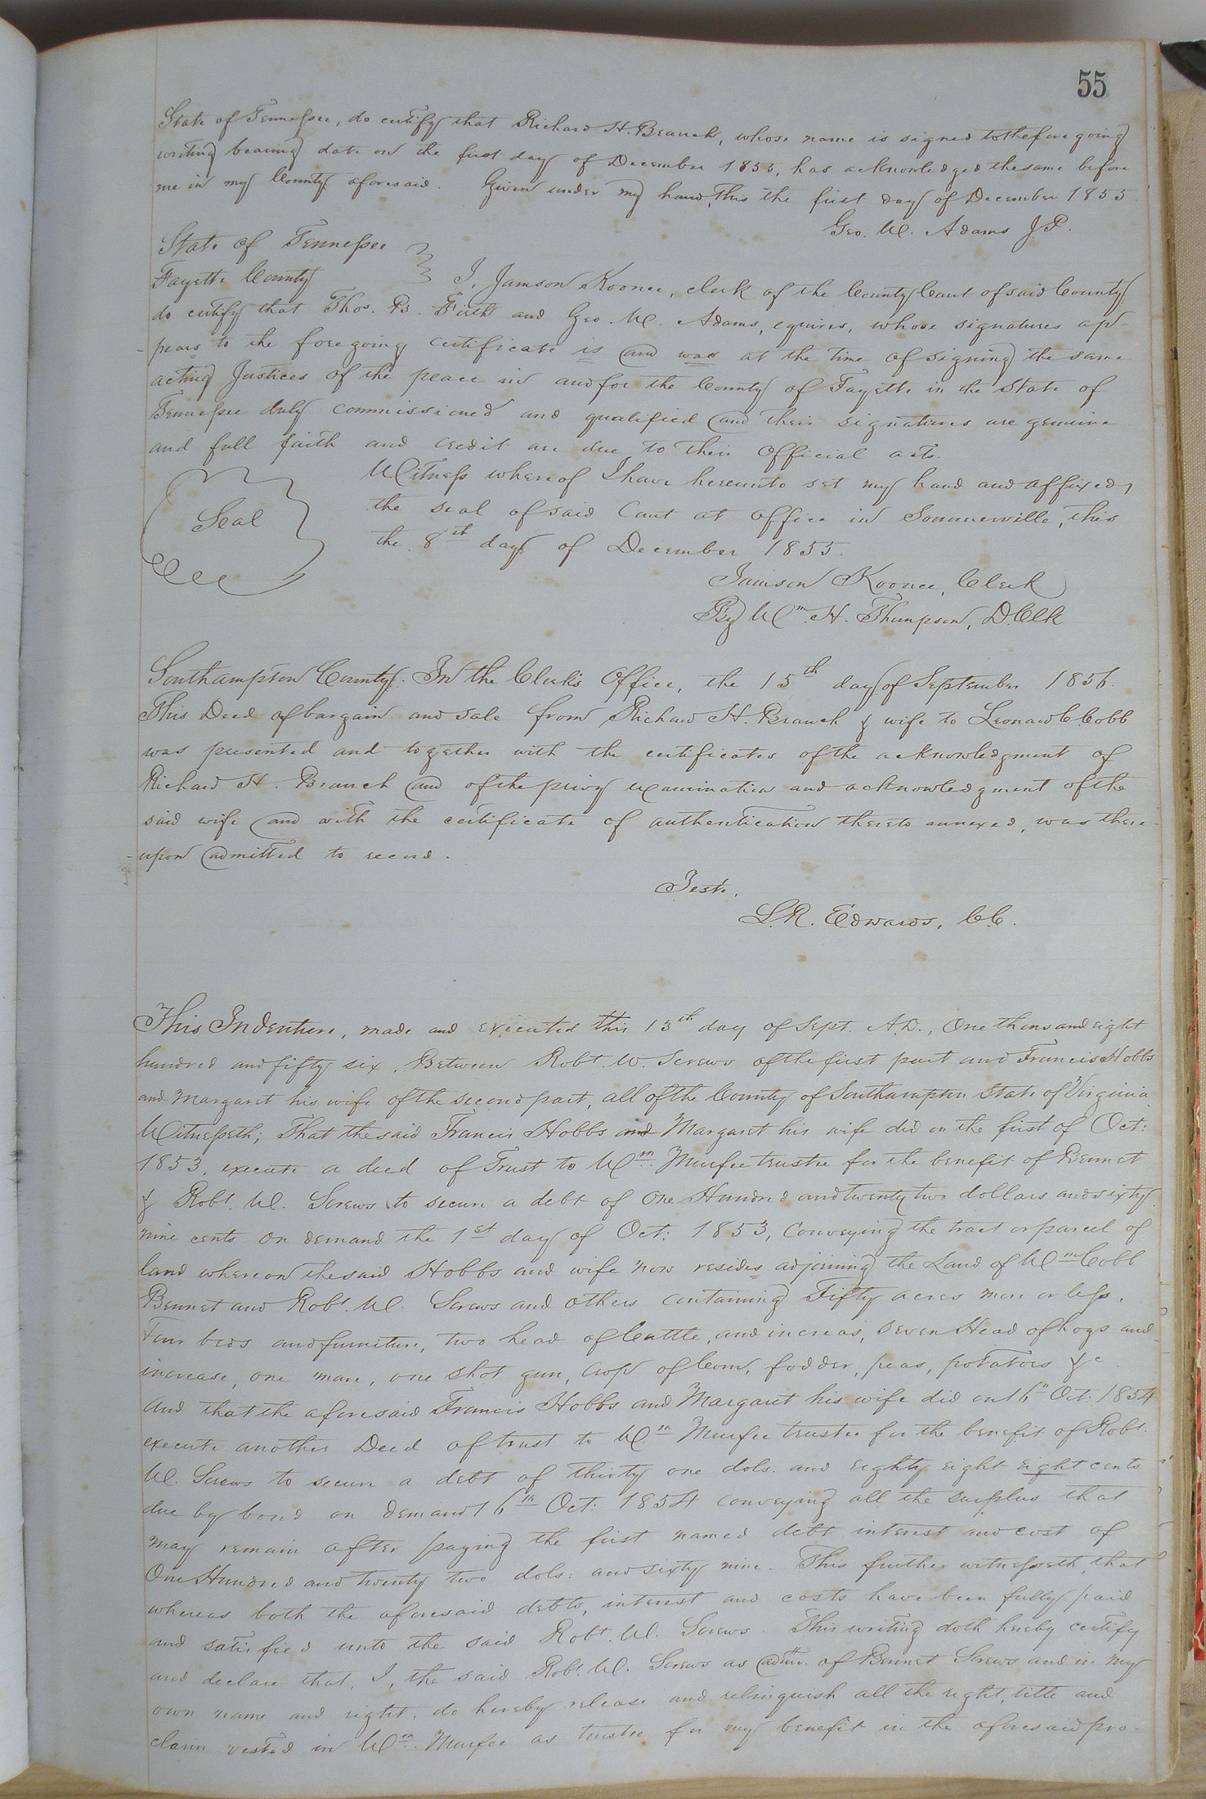 55
State of Tennessee, do certify that Richard H. Branch, whose name is signed to the fore going
writing bearing date on the first day of December 1855, has acknowledged the same before
me in my County aforesaid. Given under my hand, this the first day of December 1855
Geo. W. Adams J.P.
State of Tennessee
Fayette County
I, Jamson Koonce, clerk of the County Court of said County
do certify that Thos. B. Firth and Geo. W. Adams, equires, whose signatures ap-
pears to the foregoing certificate is and was at the time of signing the same
acting Justices of the peace in and for the County of Fayette in the State of
Tennessee duly commissioned and qualified and their signatures are genuine
and full faith and credit are due to their official acts.
Witness whereof I have hereunto set my hand and affixed
Seal
the seal of said Court at office in Sommerville, this
the 8th day of December 1855.
Jamson Koonce, Clerk
By Wm. H. Thompson, D.Clk
Southampton County: In the Clerk's Office, the 15th day of September 1856.
This Deed of bargain and sale from Richard H. Branch & wife to Leonard C. Cobb
was presented and together with the certificates of the acknowledgment of
Richard H. Branch and of the privy examination and acknowledgment of the
said wife and with the certificate of authentication thereto annexed, was there-
upon admitted to record.
Teste,
L.R. Edwards, C.C.
This Indenture, made and executed this 13th day of Sept. A.D., One thousand eight
hundred and fifty six, Between Robt. W. Screws of the first part and Francis Hobbs
and Margaret his wife of the second part, all of the County of Southampton State of Virginia
Witnesseth; That the said Francis Hobbs and Margaret his wife did on the first of Oct:
1853, execute a deed of Trust to Wm. Murfee trustee for the benefit of Bennet
& Robt. W. Screws to secure a debt of One Hundred and twenty two dollars and sixty
nine cents on demand the 1st day of Oct: 1853, Conveying the tract or parcel of
land whereon the said Hobbs and wife now resides adjoining the Land of Wm Cobb
Bennet and Robt. W. Screws and others containing Fifty acres more or less,
Four beds and furniture, two head of Cattle, and increas, seven Head of hogs and
increase, one mare, one shot gun, crop of Corn, fodder, peas, potatoes &c
And that the aforesaid Francis Hobbs and Margaret his wife did on 6th Oct. 1854
execute another Deed of trust to Wm Murfee trustee for the benefit of Robt.
W. Screws to secure a debt of thirty one dols. and eighty eight eight cents
due by bond on demand 6th Oct: 1854 conveying all the surplus that
may remain after paying the first named debt interest and cost of
One Hundred and twenty two dols: and sixty nine. This further witnesseth, that
whereas both the aforesaid debts, interest and costs have been fully paid
and satisfied unto the said Robt. W. Screws. This writing doth hereby certify
and declare that, I, the said Robt. W. Screws as admr. of Bennet Screws and in my
own name and right, do hereby release and relinquish all the right, title and
claim vested in Wm. Murfee as trustee for my benefit in the aforesaid pro-